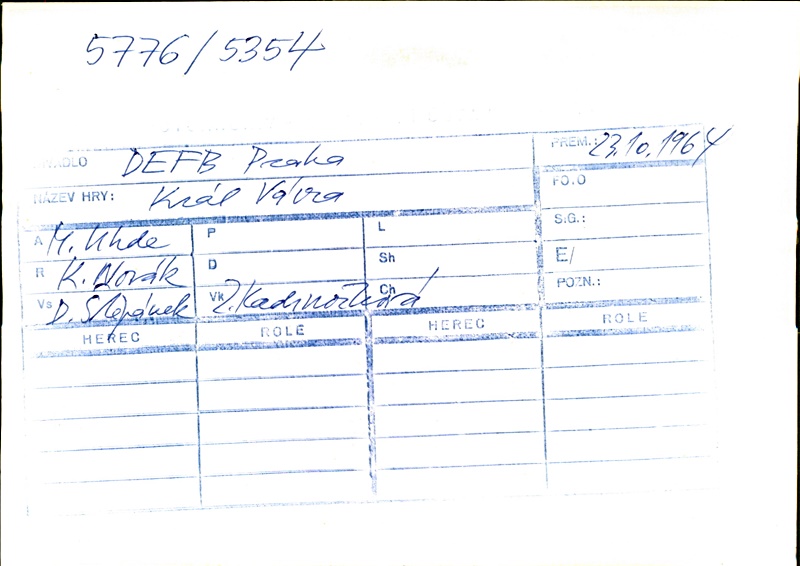 5776/5354
DIVADLO DEFB Praha PREM.: 23.10.1964
NÁZEV HRY: Král Vávra FOTO
A M. Uhde P L SIG.:
R K. Novák D Sh E/
Vs D. Štěpánek Vk Z. Kadrnožková Ch POZN.:
HEREC ROLE HEREC ROLE